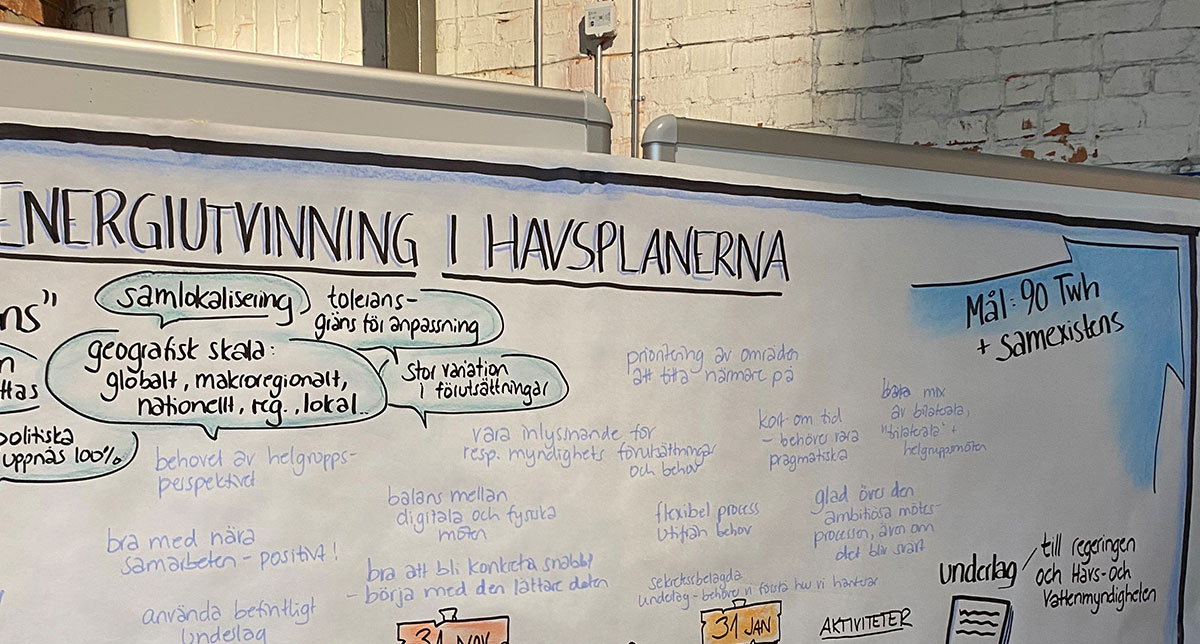 ENERGIUTVINNING I HAVSPLANERNA
samlokalisering
tolerans-
gräns för anpassning
geografisk skala:
globalt, makroregionalt,
nationellt, reg., lokal..
stor variation
i förutsättningar
politiska
uppnås 100%
Mål: 90 Twh
+ samexistens
prioritering av områden
att titta närmare på
behovet av helgrupps-
perspektivet
vara inlyssnande för
resp. myndighets förutsättningar
och behov
kort om tid
- behöver vara
pragmatiska
bara mix
av bilaterala,
"trilaterala" +
helgruppsmöten
balans mellan
digitala och fysiska
möten
flexibel process
utifrån behov
glad över den
ambitiösa mötes-
processen, även om
det blir svårt
bra med nära
samarbeten - positivt!
bra att bli konkreta snabbt
- börja med den lättare delen
sekretessbelagda
underlag - behöver vi förstå hur vi hanterar
använda befintligt
underlag
31 NOV
31 JAN
AKTIVITETER
underlag
till regeringen
och Havs- och
Vattenmyndigheten